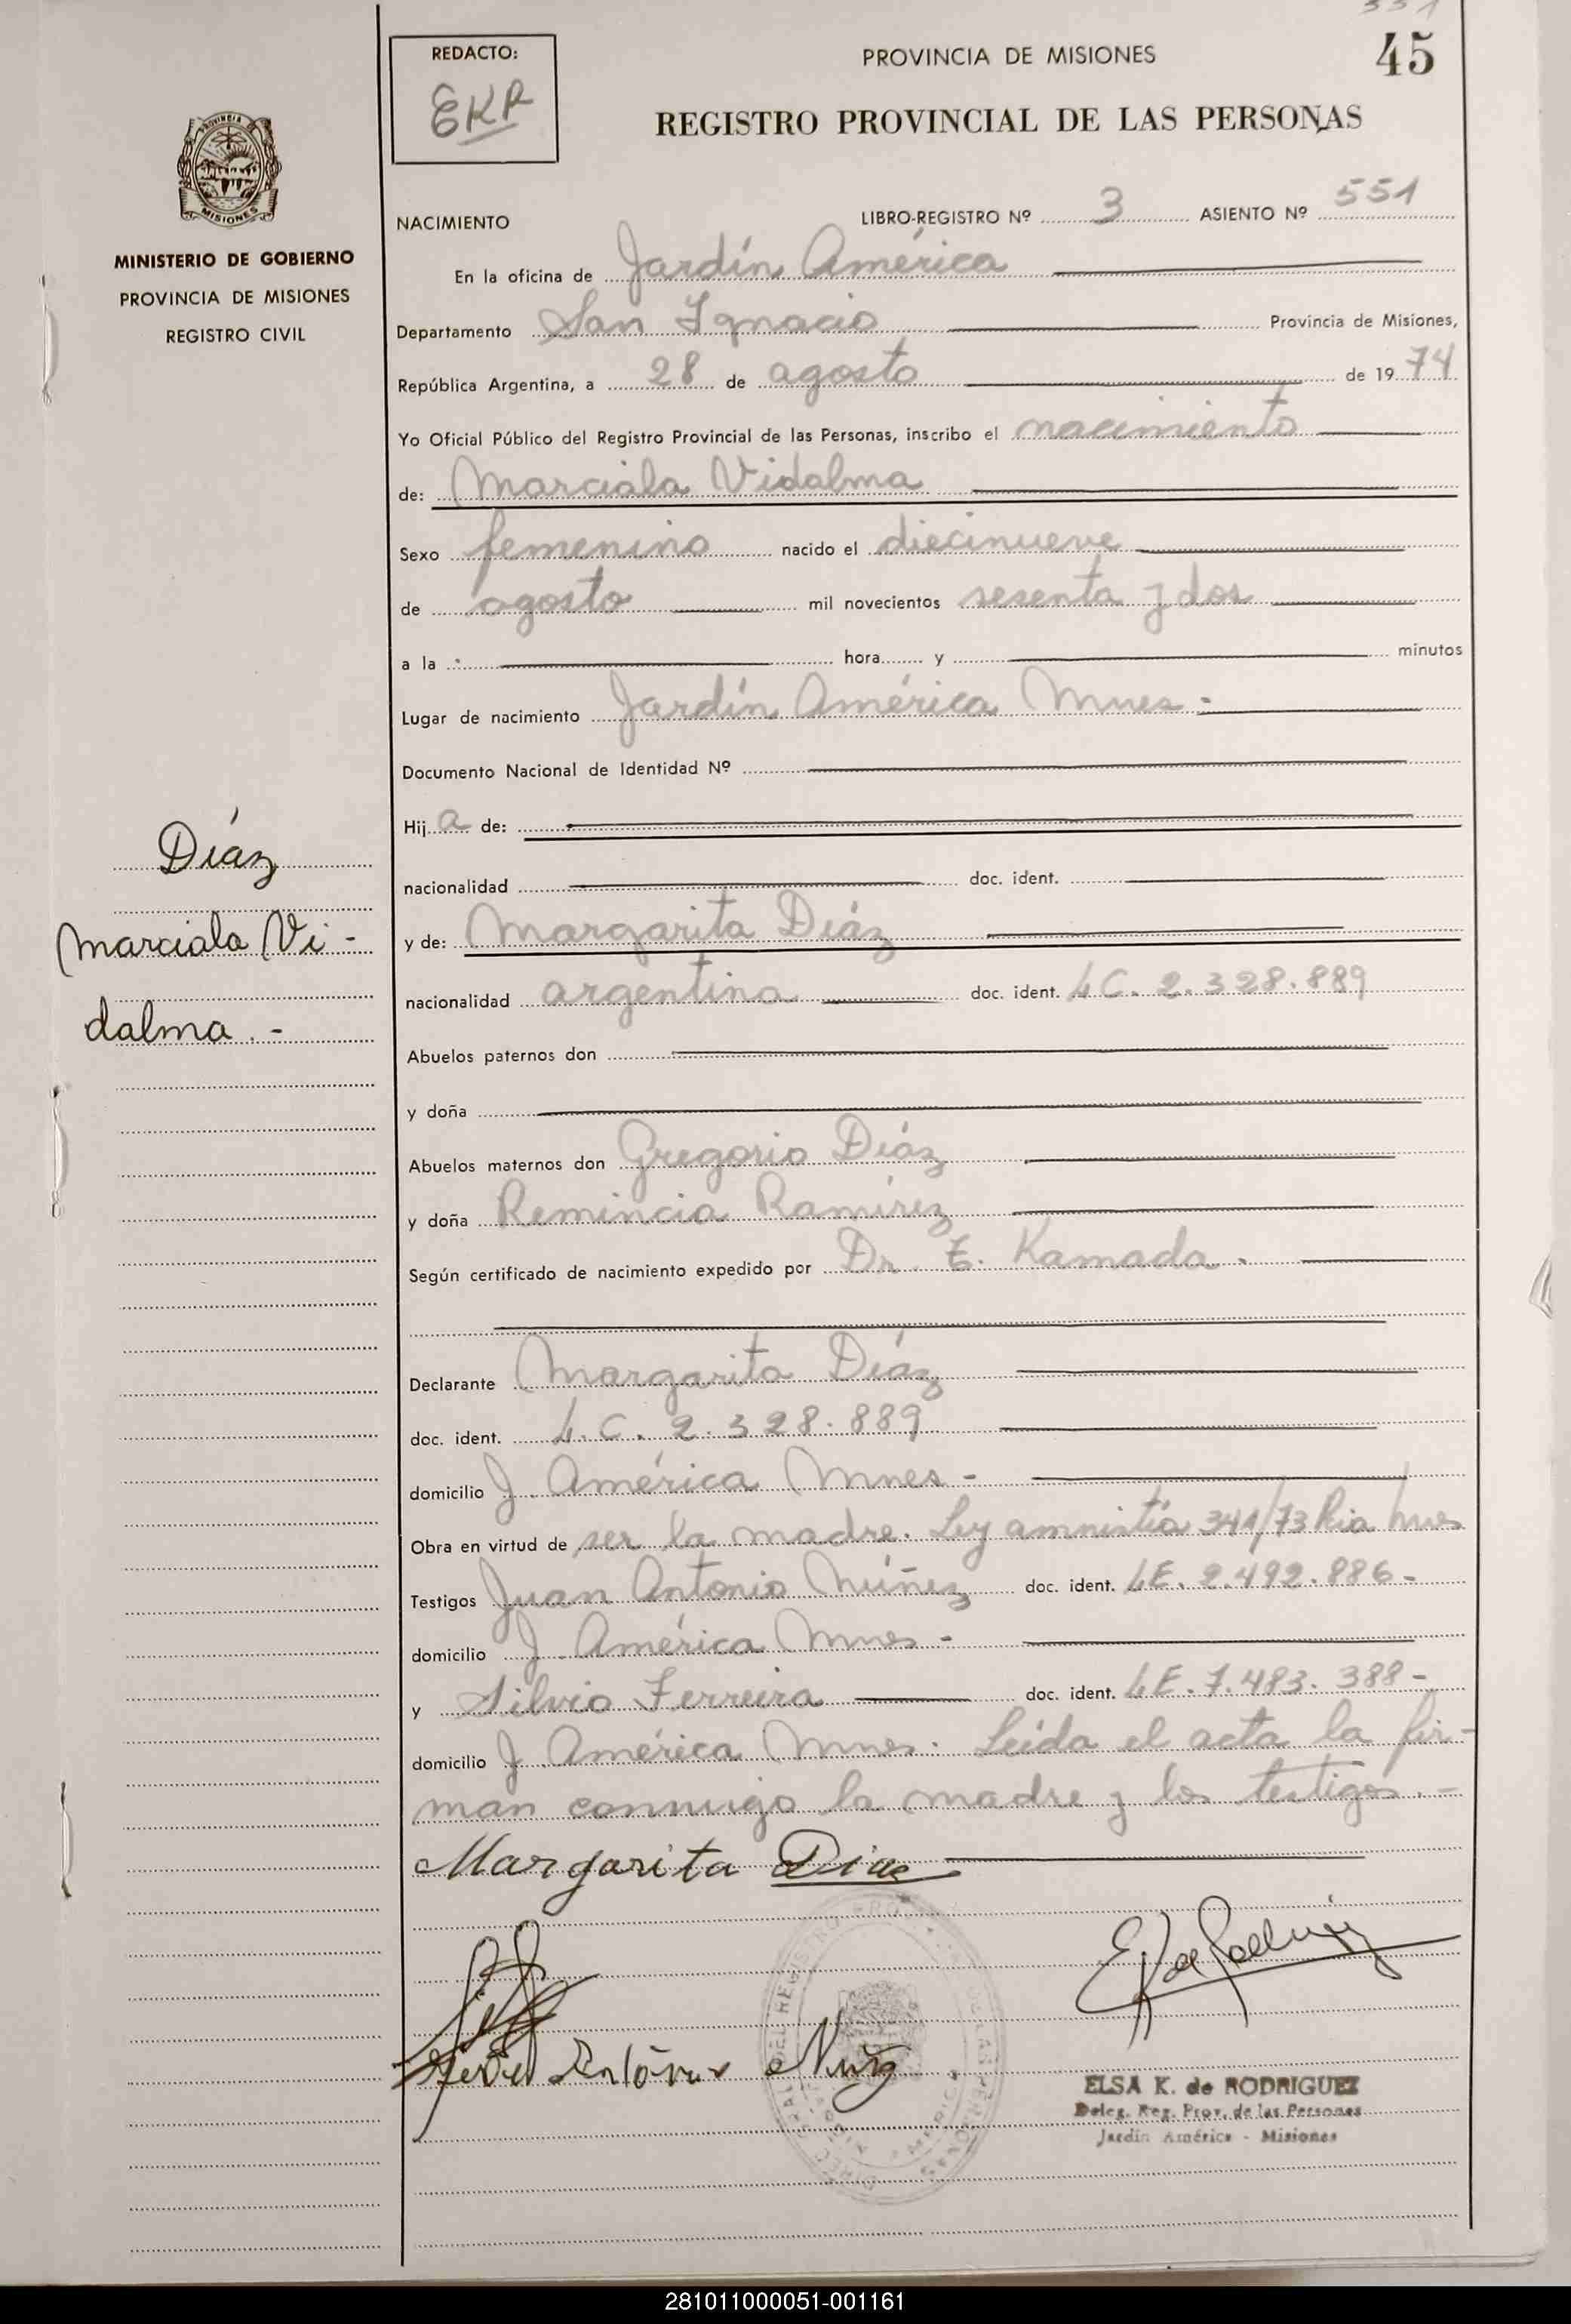 551
REDACTO:
EKR
PROVINCIA DE MISIONES
45
REGISTRO PROVINCIAL DE LAS PERSONAS
PROVINCIA
MISIONES
MINISTERIO DE GOBIERNO
PROVINCIA DE MISIONES
REGISTRO CIVIL
NACIMIENTO LIBRO-REGISTRO Nº 3 ASIENTO Nº 551
En la oficina de Jardín América
Departamento San Ignacio Provincia de Misiones,
República Argentina, a 28 de agosto de 1974
Yo Oficial Público del Registro Provincial de las Personas, inscribo el nacimiento
de: Marciala Vidalma
Sexo femenino nacido el diecinueve
de agosto mil novecientos sesenta y dos
a la hora y minutos
Lugar de nacimiento Jardín América Mnes-
Documento Nacional de Identidad Nº
Hija de:
nacionalidad doc. ident.
y de: Margarita Díaz
nacionalidad argentina doc. ident. LC. 2.328.889
Díaz
Marciala Vi-
dalma.-
Abuelos paternos don
y doña
Abuelos maternos don Gregorio Díaz
y doña Remincia Ramírez
Según certificado de nacimiento expedido por Dr. E. Kamada.
Declarante Margarita Díaz
doc. ident. L.C. 2.328.889
domicilio J. América Mnes-
Obra en virtud de ser la madre. Ley amnistía 341/73 Pcia Mnes
Testigos Juan Antonio Núñez doc. ident. LE. 2.492.886-
domicilio J. América Mnes-
y Silvio Ferreira doc. ident. LE. 7.483.388-
domicilio J. América Mnes. Leída el acta la fir-
man conmigo la madre y los testigos.-
Margarita Diaz
ELSA K. de RODRIGUEZ
Deleg. Reg. Prov. de las Personas
Jardín América - Misiones
281011000051-001161